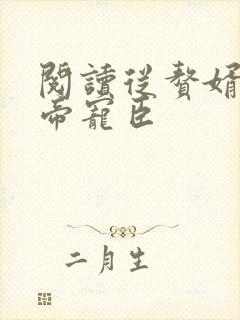 閱讀從贅婿
帝寵臣
二月生